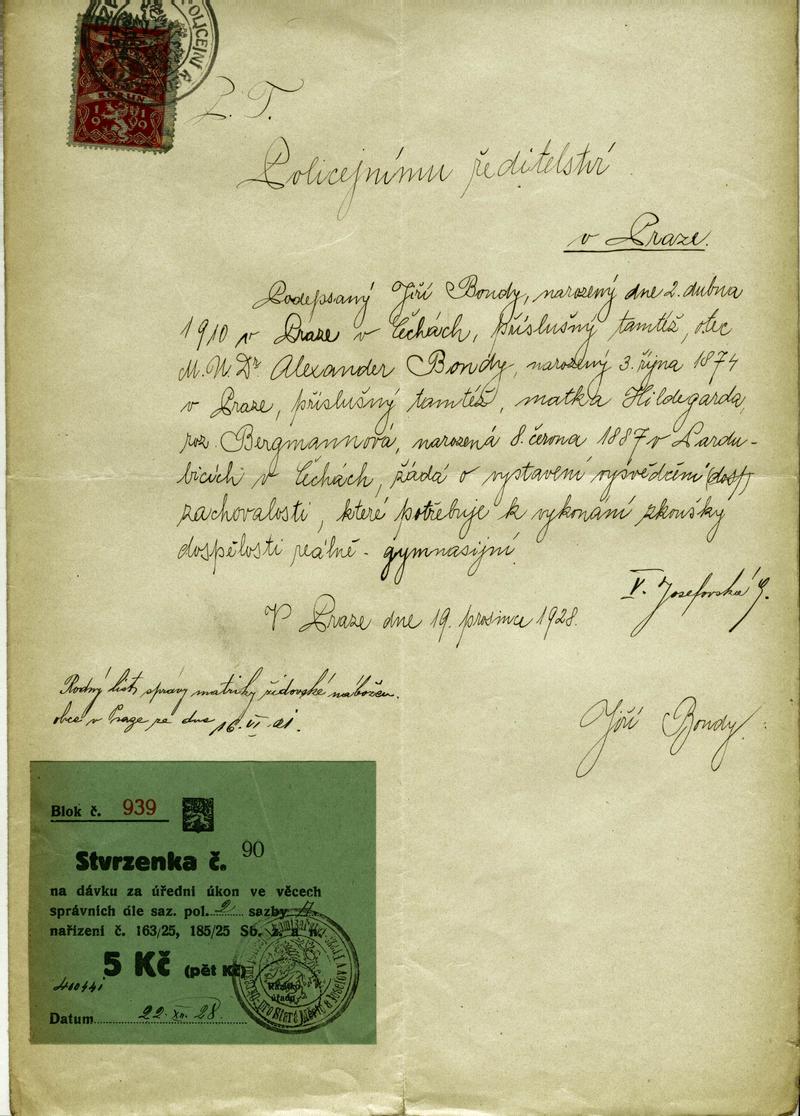 POLICEJNÍ Ř
KORUN
1919
P. T.
Policejnímu ředitelství
v Praze.
Podepsaný Jiří Bondy, narozený dne 2. dubna
1910 v Praze v Čechách, příslušný tamtéž, otec
M.U.Dr Alexander Bondy, narozený 3. října 1874
v Praze, příslušný tamtéž, matka Hildegarda,
roz. Bergmannová, narozená 8. června 1887 v Pardu-
bicích v Čechách, žádá o vystavení vysvědčení
zachovalosti, které potřebuje k vykonání zkoušky
dospělosti reálně-gymnasijní
V. Josefovská 9.
V Praze dne 19. prosince 1928.
Rodný list správy matriky židovské nábožen.
obce v Praze ze dne 16. VI. 21.
Jiří Bondy
Blok č. 939
Stvrzenka č. 90
na dávku za úřední úkon ve věcech
správních dle saz. pol. 2 sazby
nařízení č. 163/25, 185/25 Sb. z. a n.
5 Kč (pět Kč)
Razítko
úřadu
Datum 22. XII. 28.